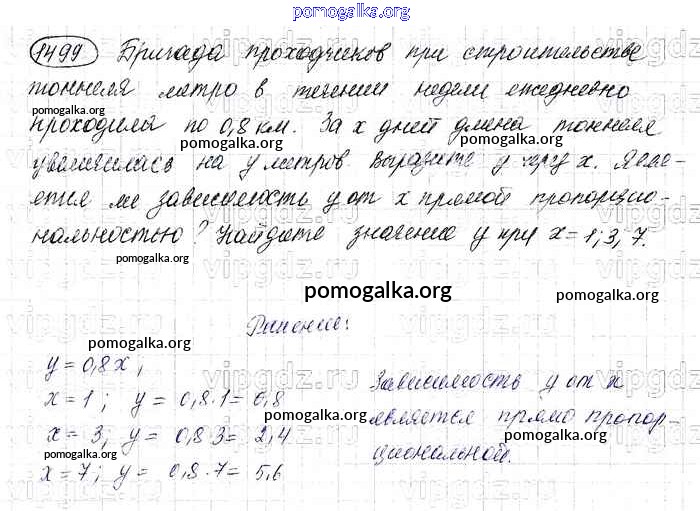 pomogalka.org
1499 Бригада проходчиков при строительстве
тоннеля метро в течении недели ежедневно
pomogalka.org
проходила по 0,8 км. За x дней длина тоннеля
увеличилась на y метров выразите y через x. Явля-
ется ли зависимость y от x прямой пропорцио-
нальностью? Найдите значение y при x=1; 3; 7.
pomogalka.org
pomogalka.org
pomogalka.org
Решение:
pomogalka.org
y = 0,8x;
x=1; y = 0,8·1=0,8
x=3; y = 0,8·3=2,4
x=7; y = 0,8·7=5,6
pomogalka.org
pomogalka.org
pomogalka.org
Зависимость y от x
является прямо пропор-
циональной.
pomogalka.org
pomogalka.org
vipgdz.ru